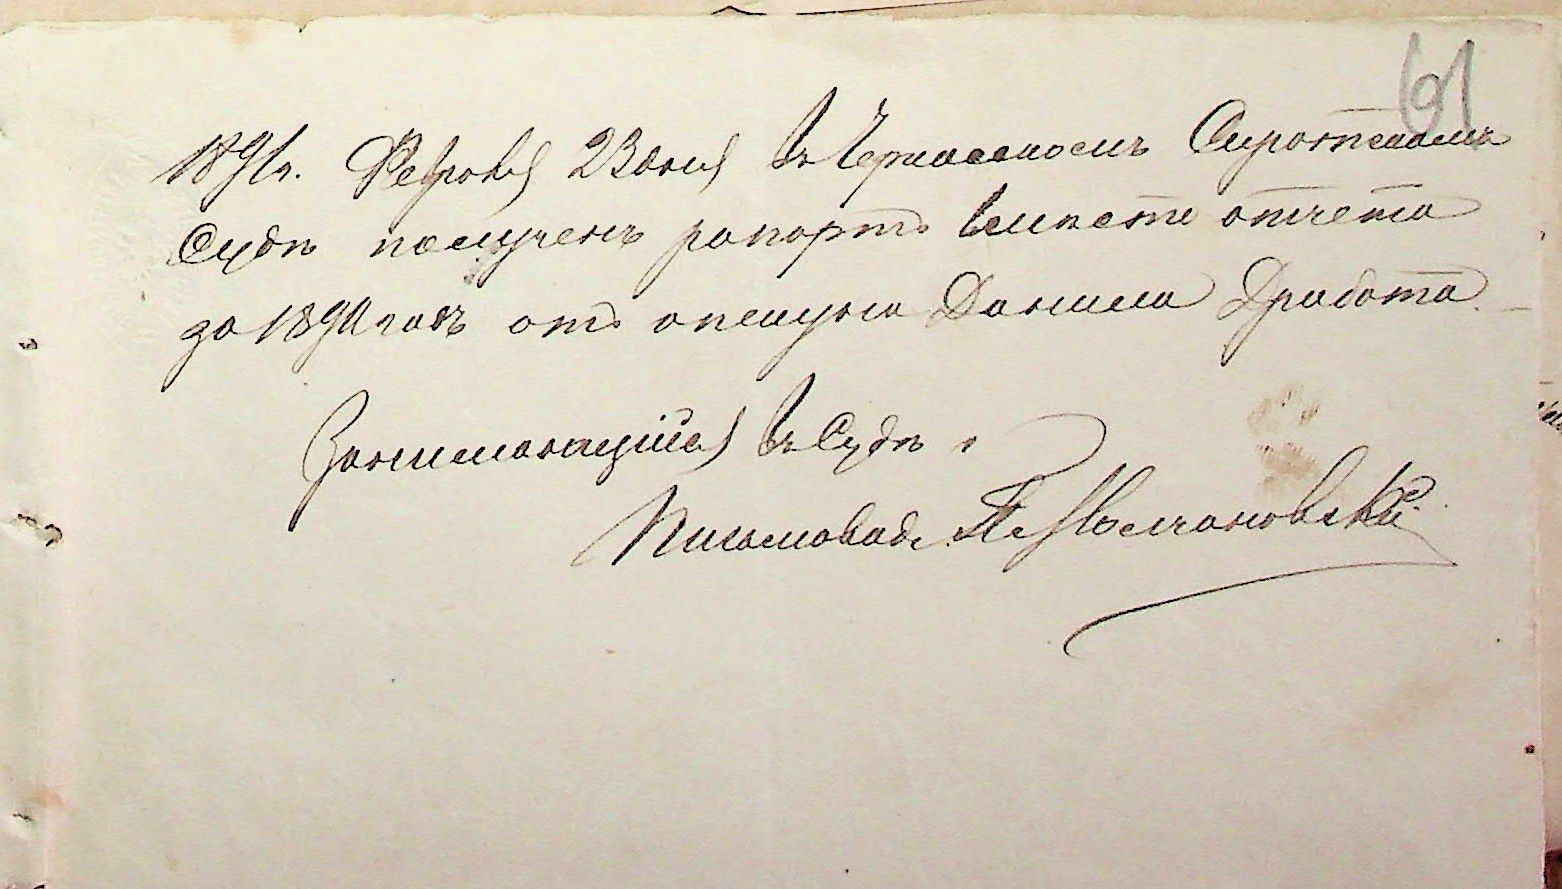 61
1891 г. Февраля 23 дня въ Черкасскомъ Сиротскомъ
Судѣ полученъ рапортъ вмѣсте отчета
за 1890 годъ от опекуна Данила Дработа.
Занимающійся въ Судѣ
Письмовод. П. Молчановскій